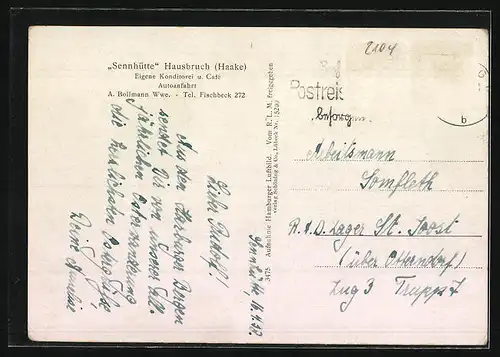 „Sennhütte" Hausbruch (Haake)
Eigene Konditorei u. Café
Autoanfahrt
A. Bollmann Wwe. - Tel. Fischbeck 272
2104
Postreis
besorgen
b
Lieber Rudolf!
Aus den Harburger Bergen
sendet Dir von unserer
jährlichen Osterwanderung
die herzlichsten Ostergrüße
Deine
Aufnahme Hamburger Luftbild. Vom R. L. M. freigegeben
3475 Verlag Schöning & Co., Lübeck Nr.
Arbeitsmann
Somfleth
R.A.D. Lager St. Joost
(über Otterndorf)
Zug 3 Trupp 7